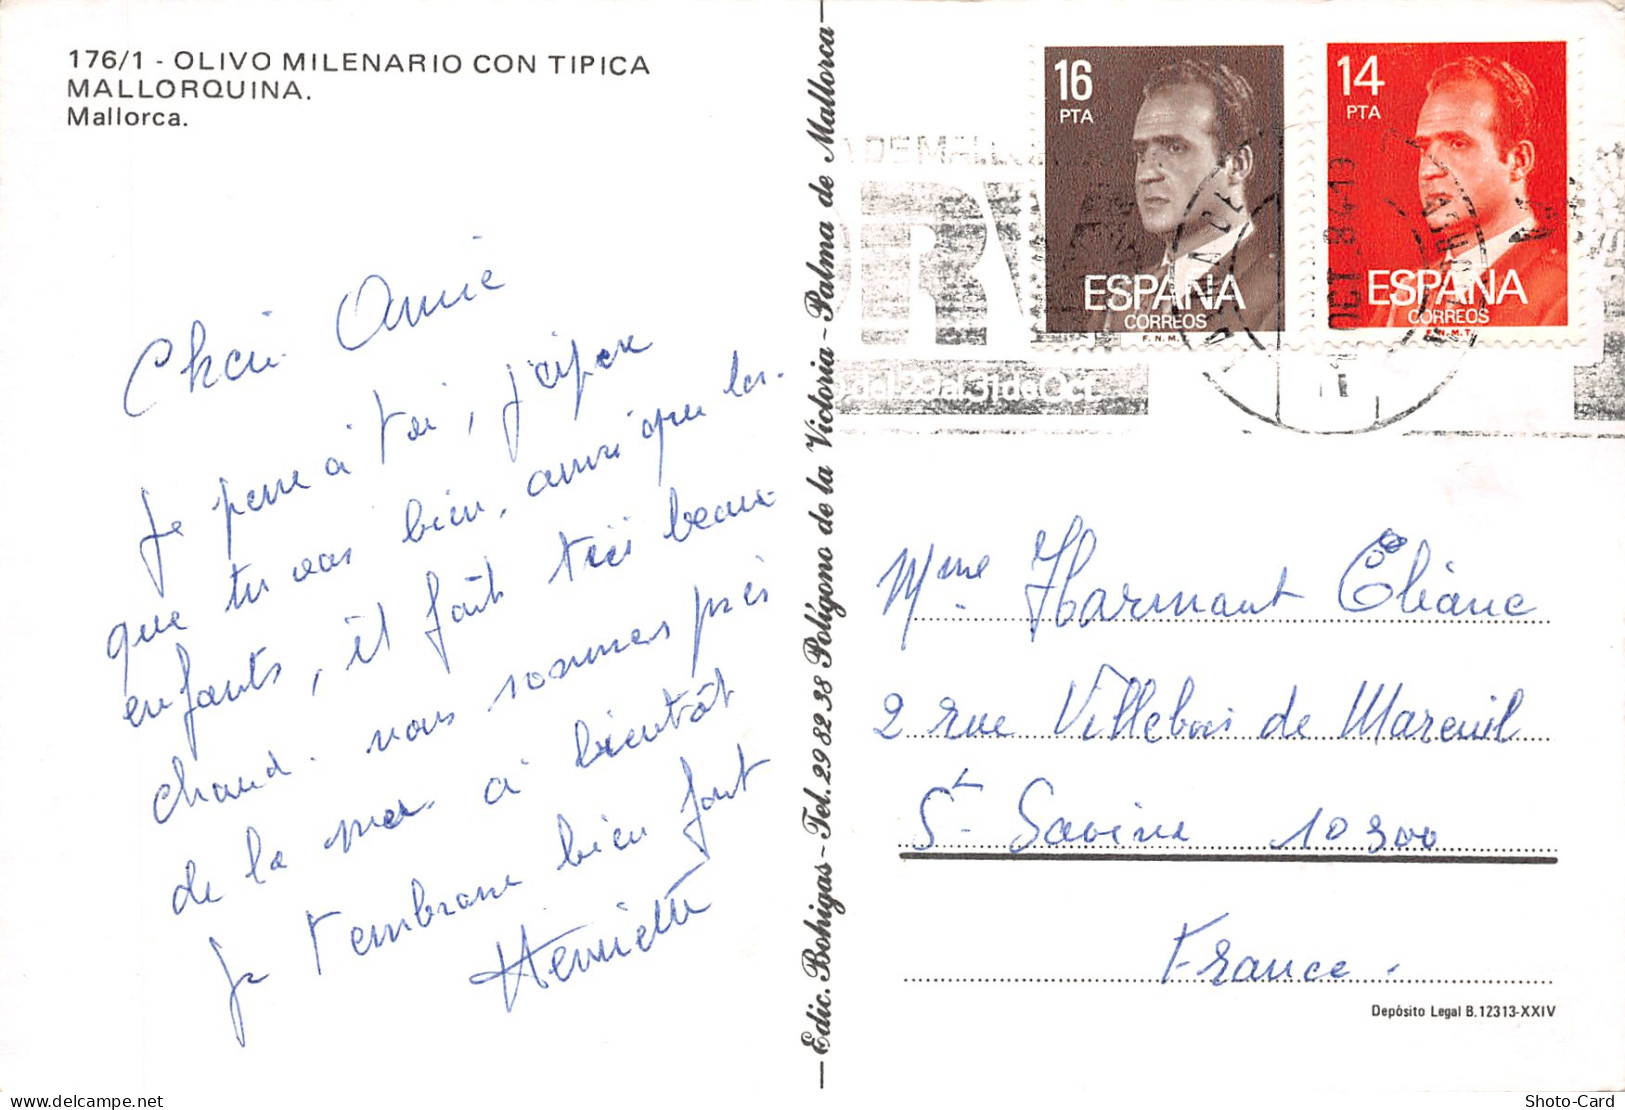 176/1 - OLIVO MILENARIO CON TIPICA
MALLORQUINA.
Mallorca.
Chère Amie
Je pense à toi, j'espère
que tu vas bien, ainsi que les
enfants, il fait très beau
chaud. nous sommes près
de la mer à bientôt
Je t'embrasse bien fort
Henriette
Edic. Bohigas - Tel. 29 82 38 Polígono de la Victoria - Palma de Mallorca
16
PTA
ESPAÑA
CORREOS
F.N.M.T.
14
PTA
ESPAÑA
CORREOS
F.N.M.T.
A DE MALLO
del 29 al 31 de Oct.
OCT 84-19
Mme Harmant Éliane
2 rue Villebois de Mareuil
St Savine 10300
France.
Depósito Legal B.12313-XXIV
delcampe.net
Shoto-Card